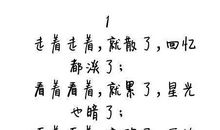 1
走着走着，就散了，回忆
都淡了；
看着看着，就累了，星光
也暗了；